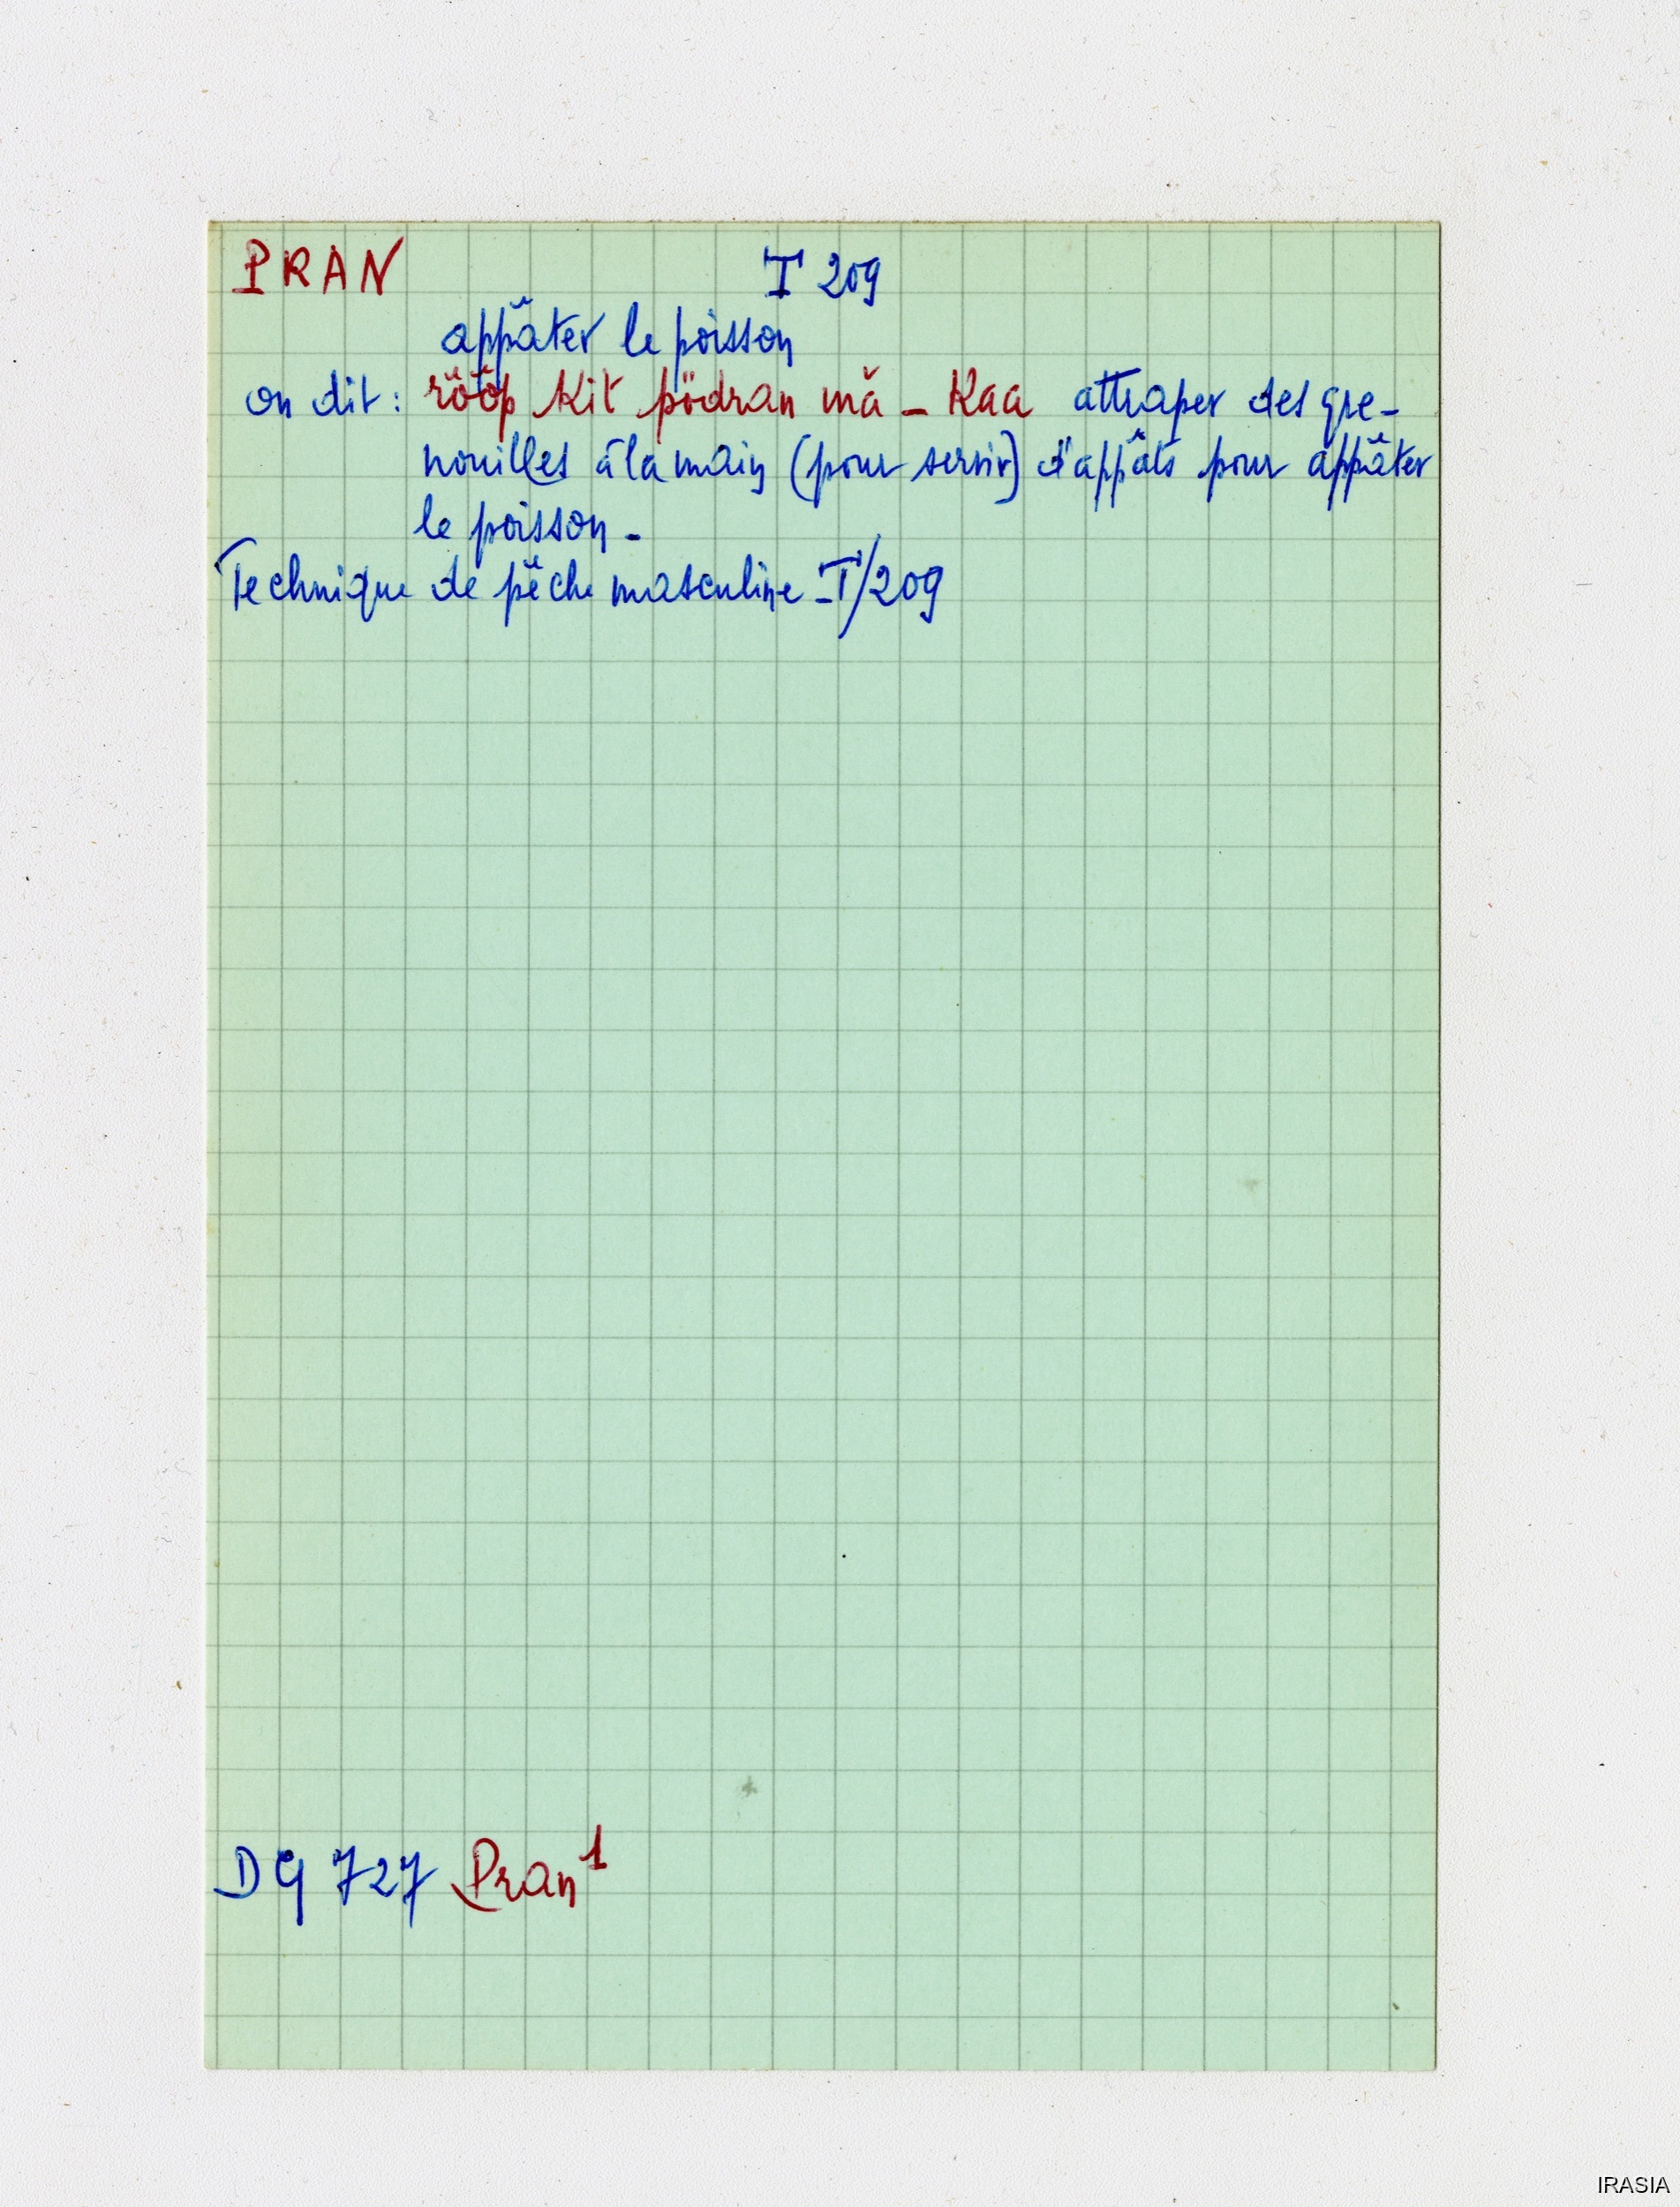 PRAN T 209
appâter le poisson
on dit : rööp kit pödran mă - Kaa attraper des gre-
nouilles à la main (pour servir) d'appâts pour appâter
le poisson -
Technique de pêche masculine - T/209
DG 727 Pran¹
IRASIA